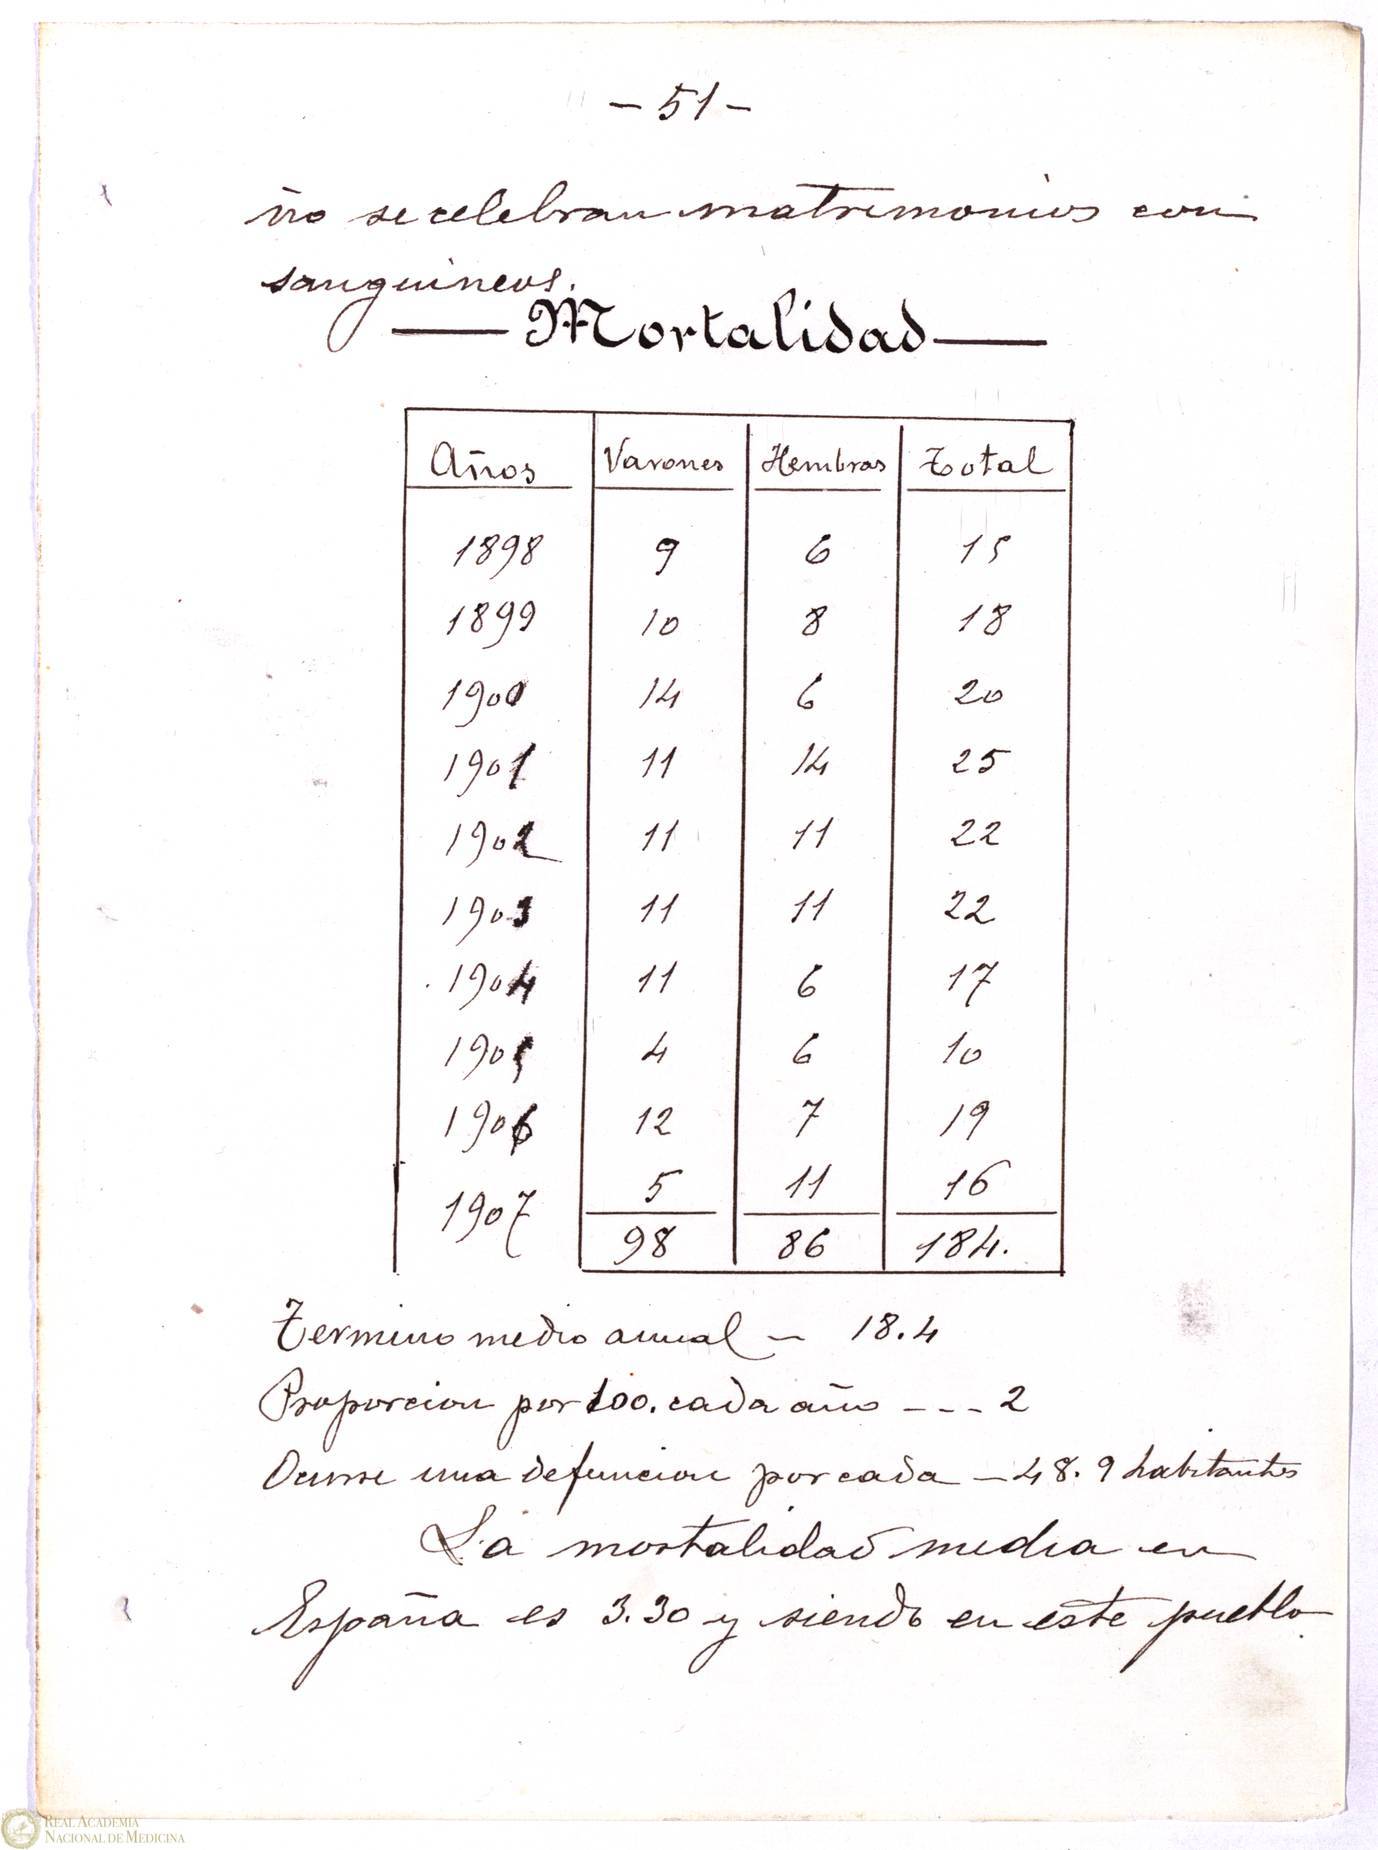 - 51 -
ño se celebran matrimonios con
sanguineos.
Mortalidad
Años Varones Hembras Total
1898 9 6 15
1899 10 8 18
1900 14 6 20
1901 11 14 25
1902 11 11 22
1903 11 11 22
1904 11 6 17
1905 4 6 10
1906 12 7 19
1907 5 11 16
98 86 184.
Termino medio anual - 18.4
Proporcion por 100. cada año --- 2
Ocurre una defuncion por cada - 48.9 habitantes
La mortalidad media en
España es 3.30 y siendo en este pueblo
REAL ACADEMIA
NACIONAL DE MEDICINA